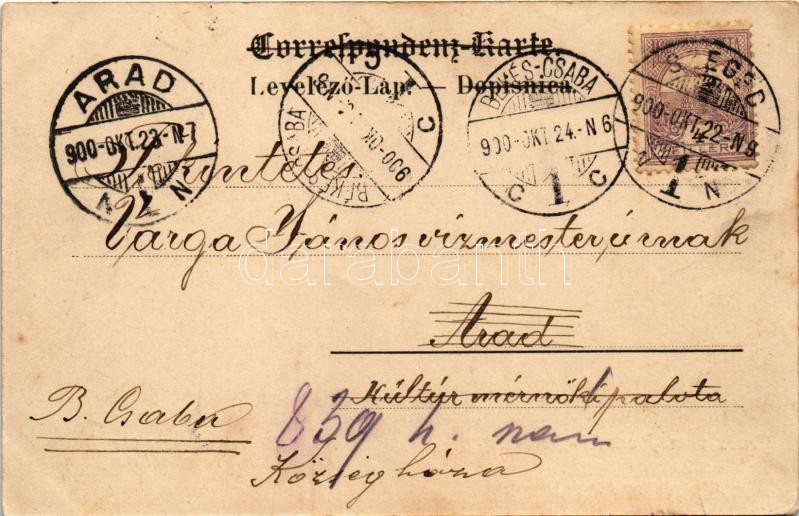 Correspondenz-Karte.
Levelező-Lap. — Dopisnica.
ARAD
900-OKT.23.-N7
BÉKÉS-CSABA
BÉKÉS-CSABA
900-OKT.24.-N6
C 1 C
SZEGED
900-OKT.22-N9
Tekintetes
Varga János vizmester úrnak
Arad
Kultúr mérnöki palota
B. Csaba
839 h. szám
Községháza
darabanth